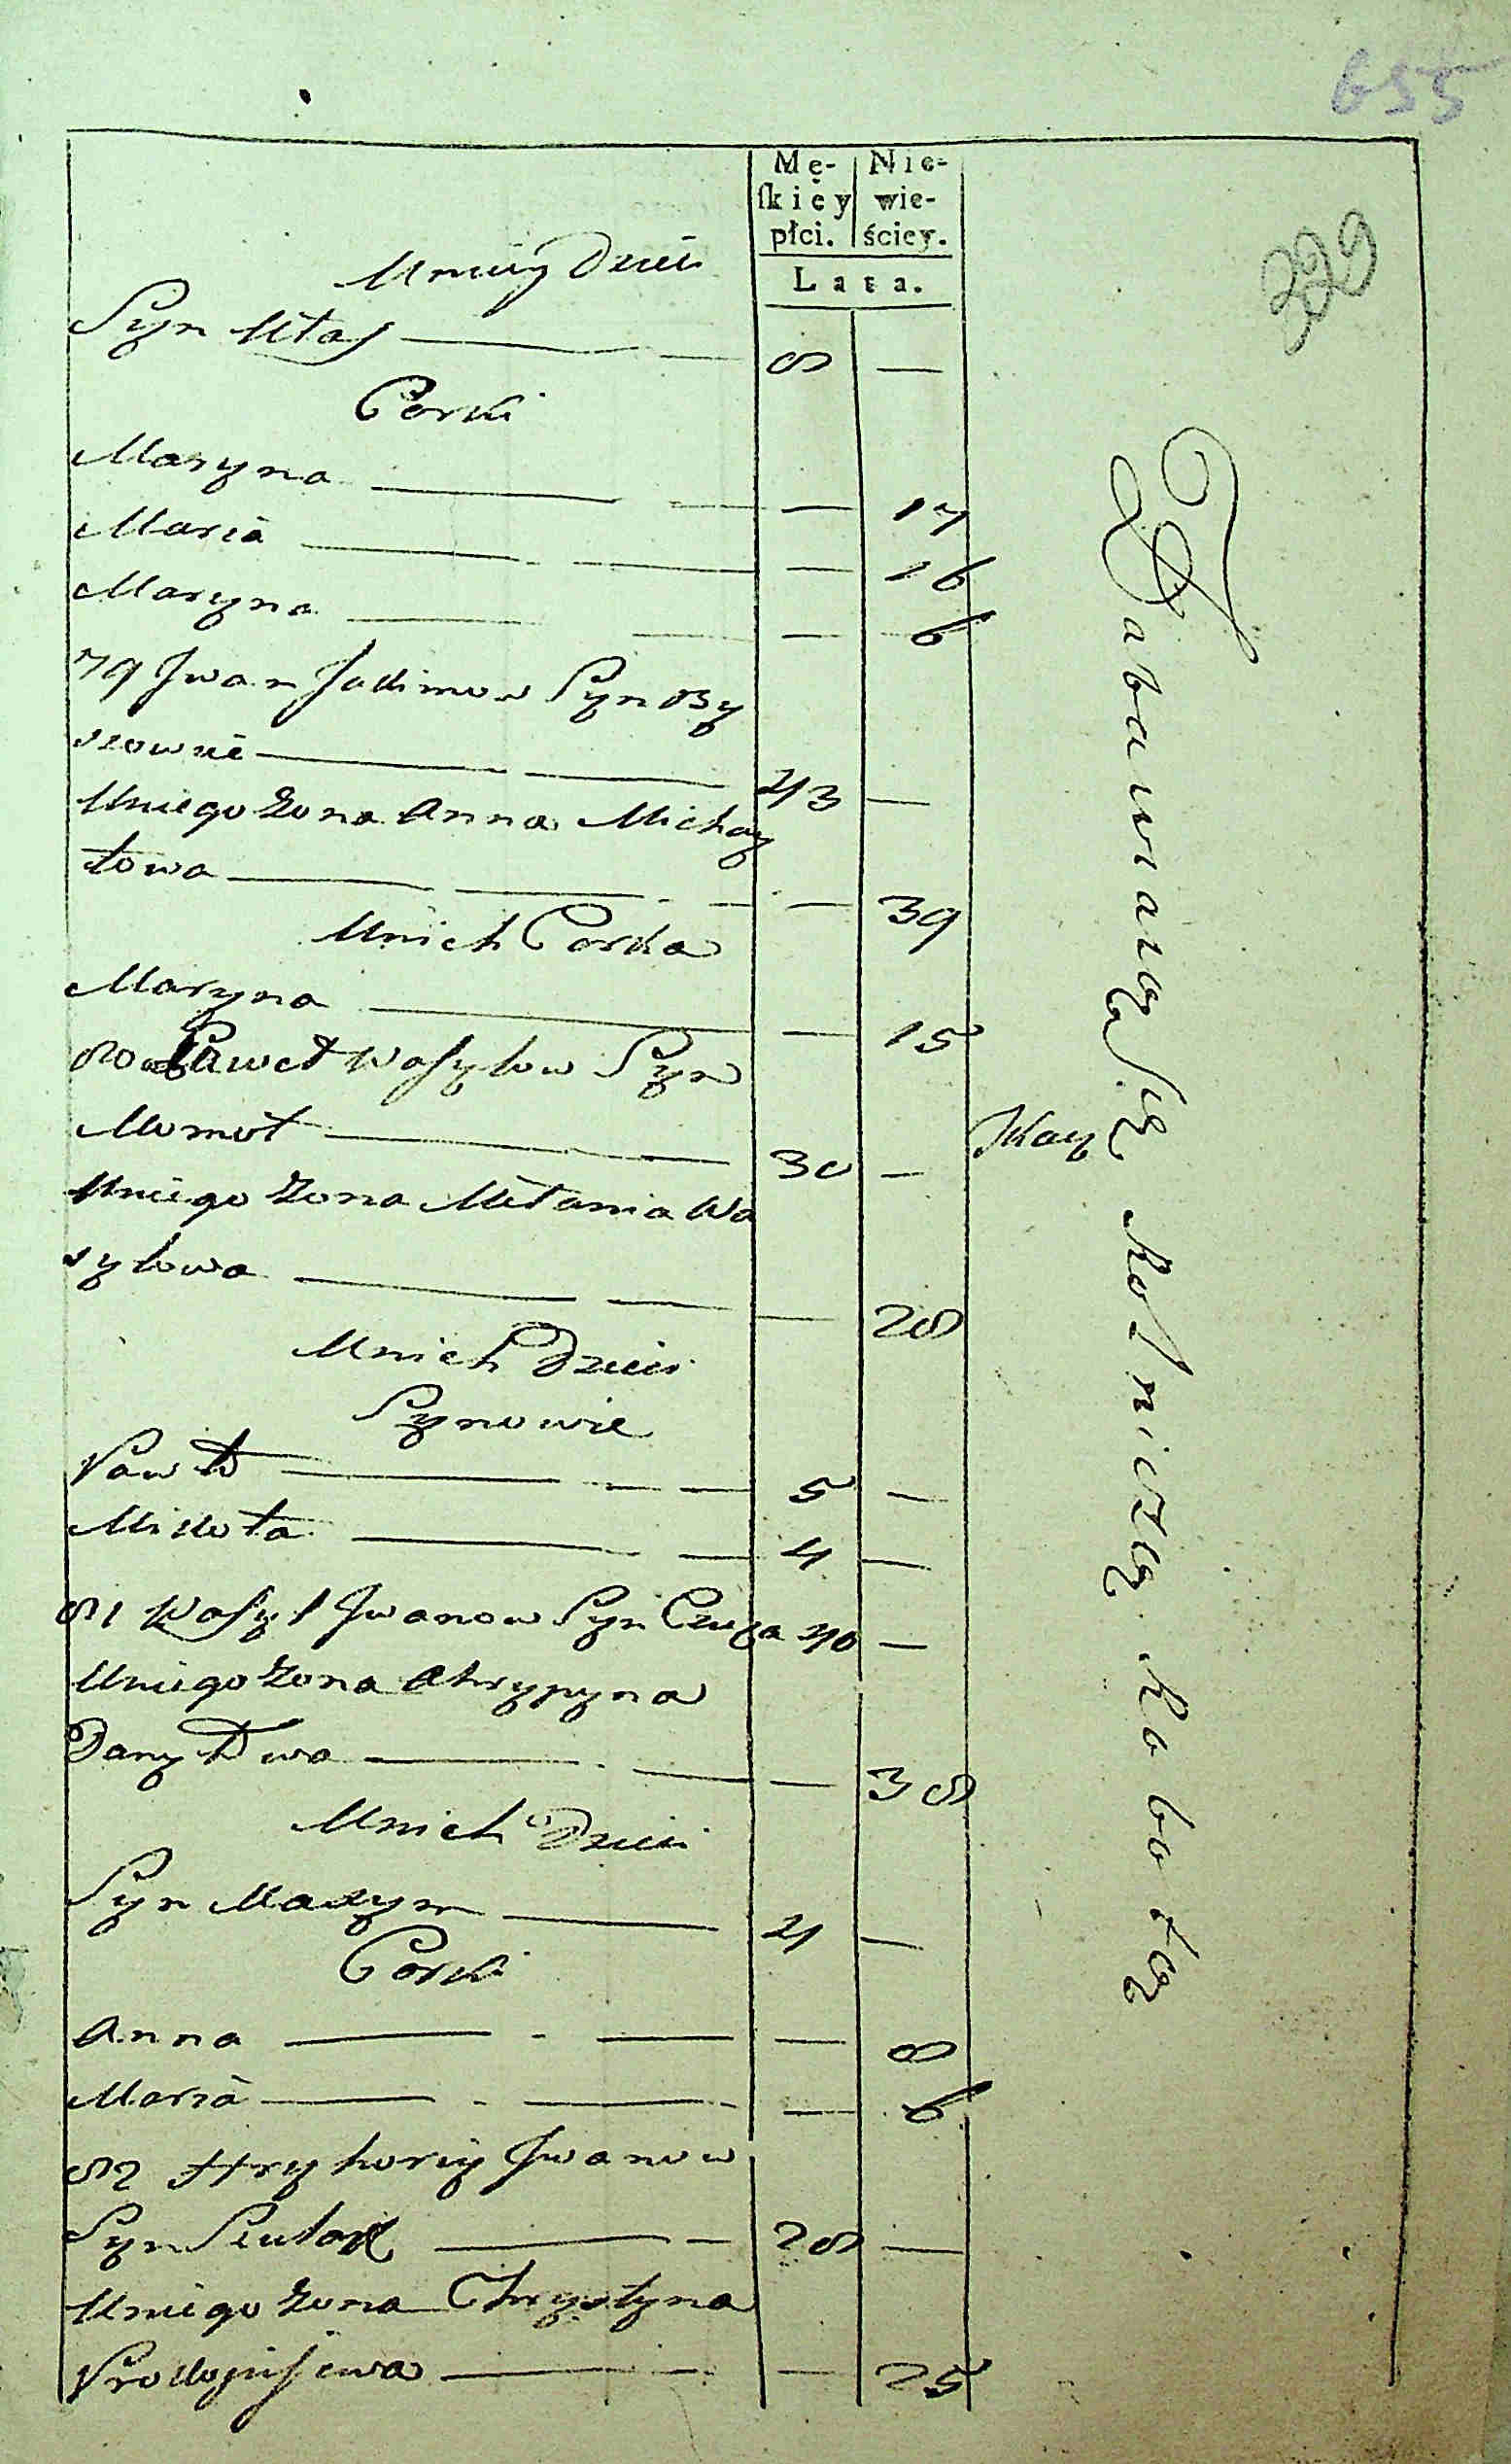 655
329
Mę-
ſkiey
płci.
Nie-
wie-
ściey.
Lata.
Uniey Dzieci
Syn Ułas — 8 —
Corki
Maryna — — 17
Maria — — 16
Maryna — — 6
79 Jwan Jakimow Syn
— 43 —
Uniego Żona Anna Michay
łowa — — 39
Unich Corka
Maryna — — 15
80 Paweł Wasylow Syn
Momot — 30 —
Uniego Żona Mełania Wa
sylowa — — 28
Unich Dzieci
Synowie
Pawło — 5 —
Mikoła — 4 —
81 Wasyl Jwanow Syn 40 —
Uniego Żona Ahrypyna
Daniłowa — — 38
Unich Dzieci
Syn Maxym — 4 —
Corki
Anna — — 8
Maria — — 6
82 Hryhoriy Jwanow
Syn — 28 —
Uniego Żona Chrystyna
Prokopijewa — — 25
Zabawiaią Się Rolniczą Robotą